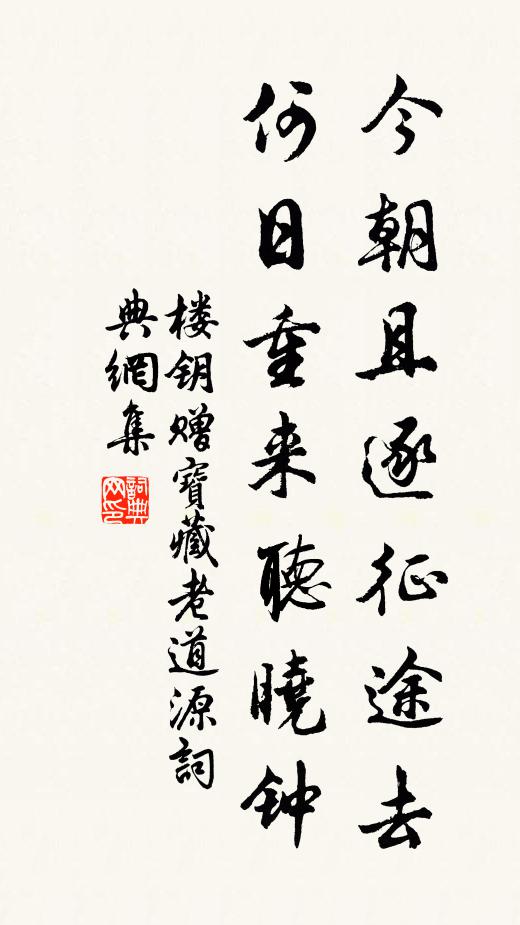 今朝且逐征途去
何日重来聽曉钟
楼钥赠寶藏老道源詞
典網集
詞典网印